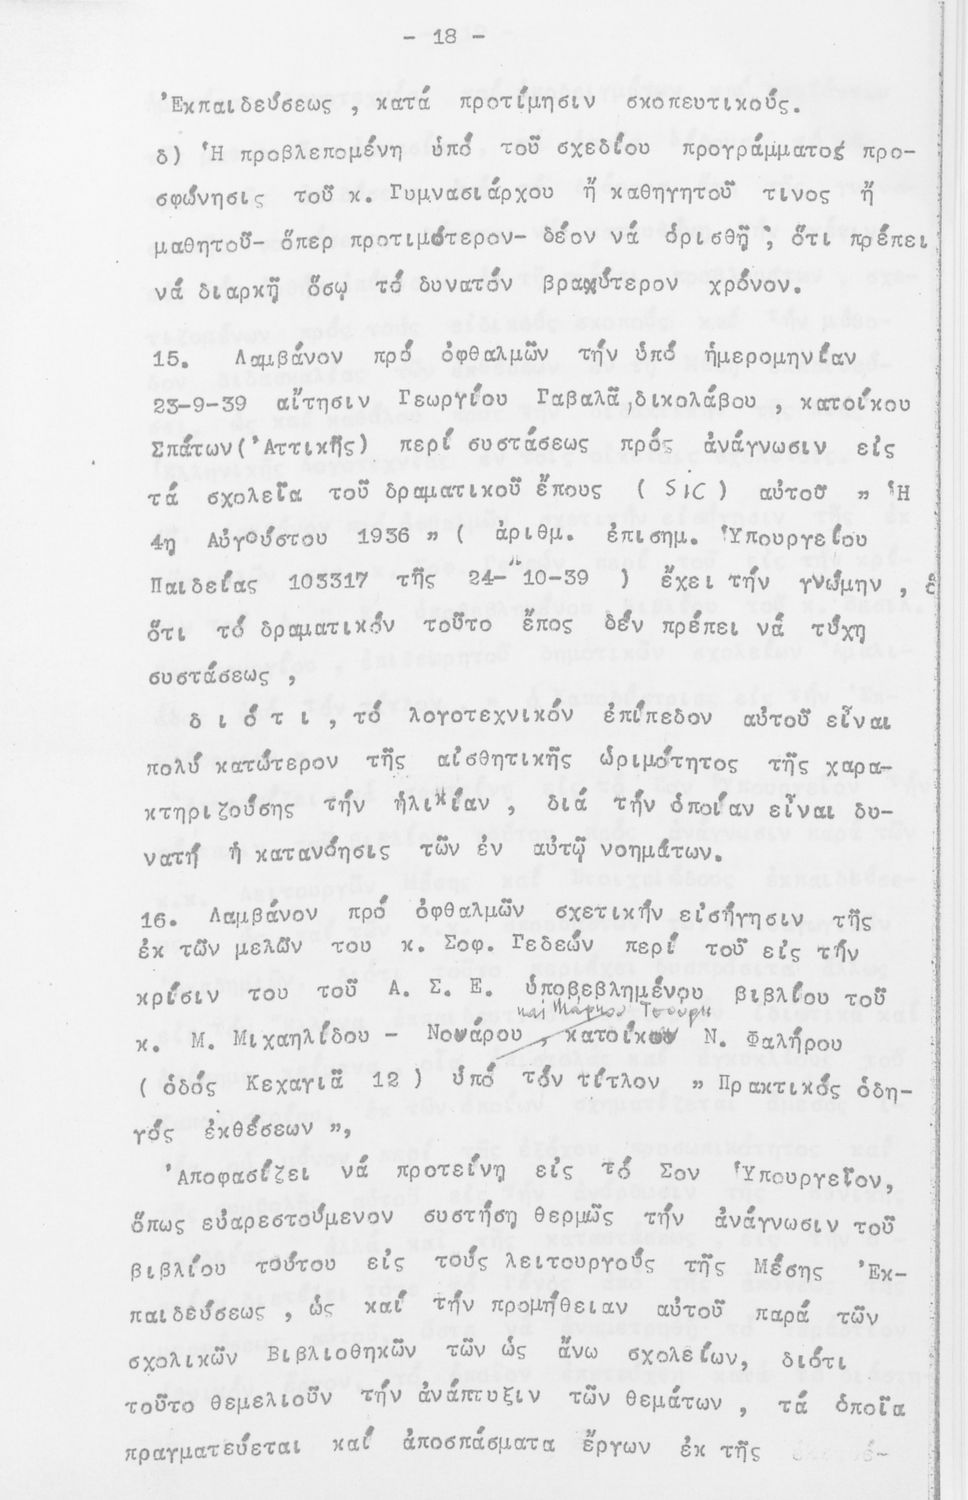 - 18 -
Ἐκπαιδεύσεως , κατά προτίμησιν σκοπευτικούς.
δ) Ἡ προβλεπομένη ὑπό τοῦ σχεδίου προγράμματος προ-
σφώνησις τοῦ κ. Γυμνασιάρχου ἤ καθηγητοῦ τινος ἤ
μαθητοῦ- ὅπερ προτιμότερον- δέον νά ὁρισθῇ , ὅτι πρέπει
νά διαρκῇ ὅσῳ τό δυνατόν βραχύτερον χρόνον.
15. Λαμβάνον πρό ὀφθαλμῶν τήν ὑπό ἡμερομηνίαν
23-9-39 αἴτησιν Γεωργίου Γαβαλᾶ ,δικολάβου , κατοίκου
Σπάτων(Ἀττικῆς) περί συστάσεως πρός ἀνάγνωσιν εἰς
τά σχολεῖα τοῦ δραματικοῦ ἔπους ( SIC ) αὐτοῦ " Ἡ
4η Αὐγούστου 1936 " ( ἀριθμ. ἐπισημ. Ὑπουργείου
Παιδείας 103317 τῆς 24- 10-39 ) ἔχει τήν γνώμην ,
ὅτι τό δραματικόν τοῦτο ἔπος δέν πρέπει νά τύχῃ
συστάσεως ,
δ ι ό τ ι , τό λογοτεχνικόν ἐπίπεδον αὐτοῦ εἶναι
πολύ κατώτερον τῆς αἰσθητικῆς ὡριμότητος τῆς χαρα-
κτηριζούσης τήν ἡλικίαν , διά τήν ὁποίαν εἶναι δυ-
νατή ἡ κατανόησις τῶν ἐν αὐτῷ νοημάτων.
16. Λαμβάνον πρό ὀφθαλμῶν σχετικήν εἰσήγησιν τῆς
ἐκ τῶν μελῶν του κ. Σοφ. Γεδεών περί τοῦ εἰς τήν
κρίσιν του τοῦ Α. Σ. Ε. ὑποβεβλημένου βιβλίου τοῦ
καί Μάρκου Τσούρη
κ. Μ. Μιχαηλίδου - Νουάρου , κατοίκων Ν. Φαλήρου
( ὁδός Κεχαγιᾶ 12 ) ὑπό τόν τίτλον " Πρακτικός ὁδη-
γός ἐκθέσεων ",
Ἀποφασίζει νά προτείνῃ εἰς τό Σον Ὑπουργεῖον,
ὅπως εὐαρεστούμενον συστήσῃ θερμῶς τήν ἀνάγνωσιν τοῦ
βιβλίου τούτου εἰς τούς λειτουργούς τῆς Μέσης Ἐκ-
παιδεύσεως , ὡς καί τήν προμήθειαν αὐτοῦ παρά τῶν
σχολικῶν Βιβλιοθηκῶν τῶν ὡς ἄνω σχολείων, διότι
τοῦτο θεμελιοῦν τήν ἀνάπτυξιν τῶν θεμάτων , τά ὁποῖα
πραγματεύεται καί ἀποσπάσματα ἔργων ἐκ τῆς